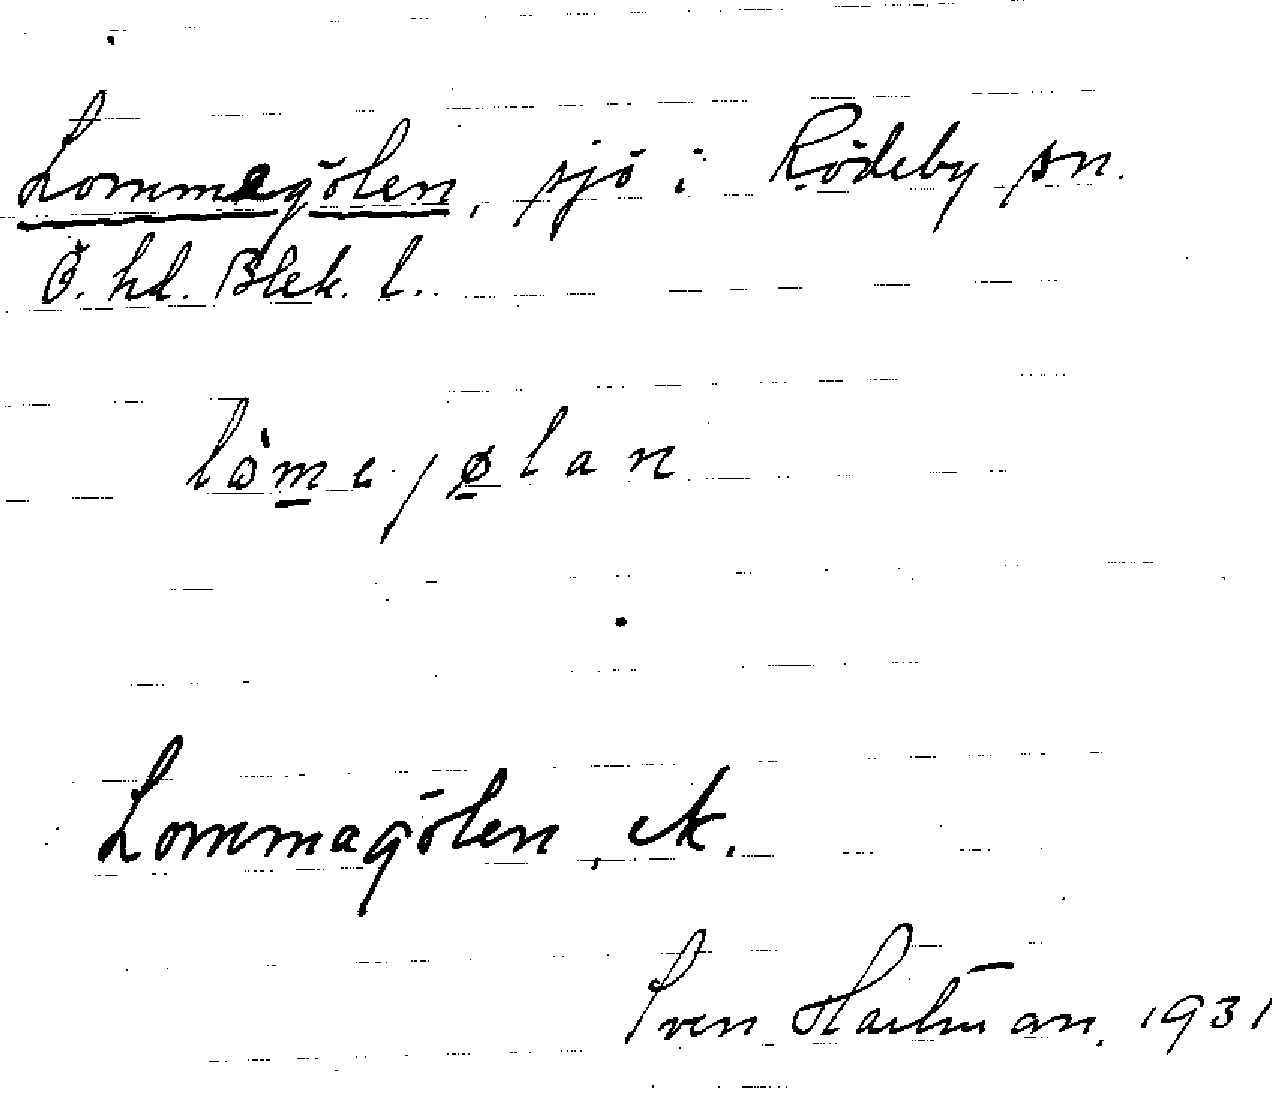 Lommegölen, sjö i Rödeby sn.
Ö. hd. Blek. l.
lò̀mejølan
Lommagölen, ek.
Sven Hartman. 1931